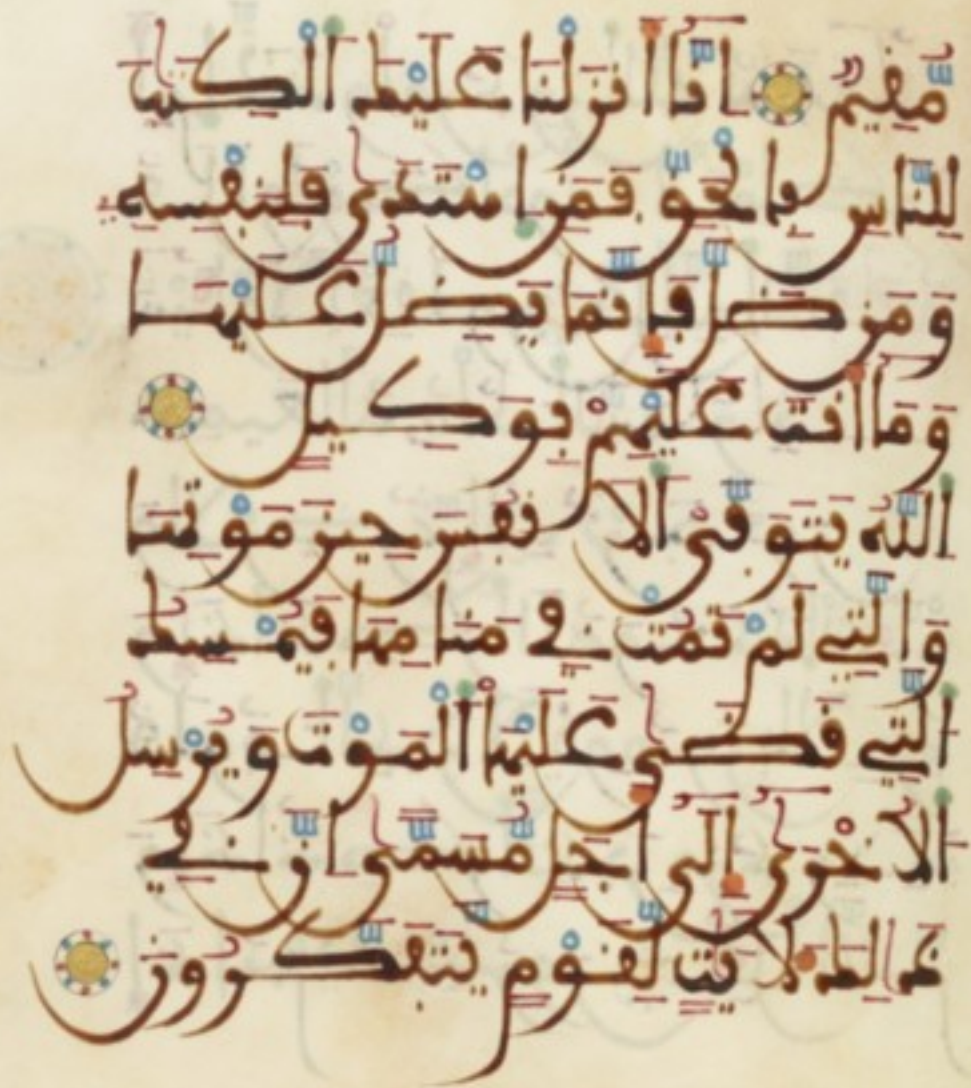 مُّقِيمٌ إِنَّا أَنزَلْنَا عَلَيْكَ الْكِتَٰبَ
لِلنَّاسِ بِالْحَقِّ فَمَنِ اهْتَدَىٰ فَلِنَفْسِهِ
وَمَن ضَلَّ فَإِنَّمَا يَضِلُّ عَلَيْهَا
وَمَا أَنتَ عَلَيْهِم بِوَكِيلٍ
اللَّهُ يَتَوَفَّى الْأَنفُسَ حِينَ مَوْتِهَا
وَالَّتِي لَمْ تَمُتْ فِي مَنَامِهَا فَيُمْسِكُ
الَّتِي قَضَىٰ عَلَيْهَا الْمَوْتَ وَيُرْسِلُ
الْأُخْرَىٰ إِلَىٰ أَجَلٍ مُّسَمًّى إِنَّ فِي
ذَٰلِكَ لَآيَٰتٍ لِّقَوْمٍ يَتَفَكَّرُونَ